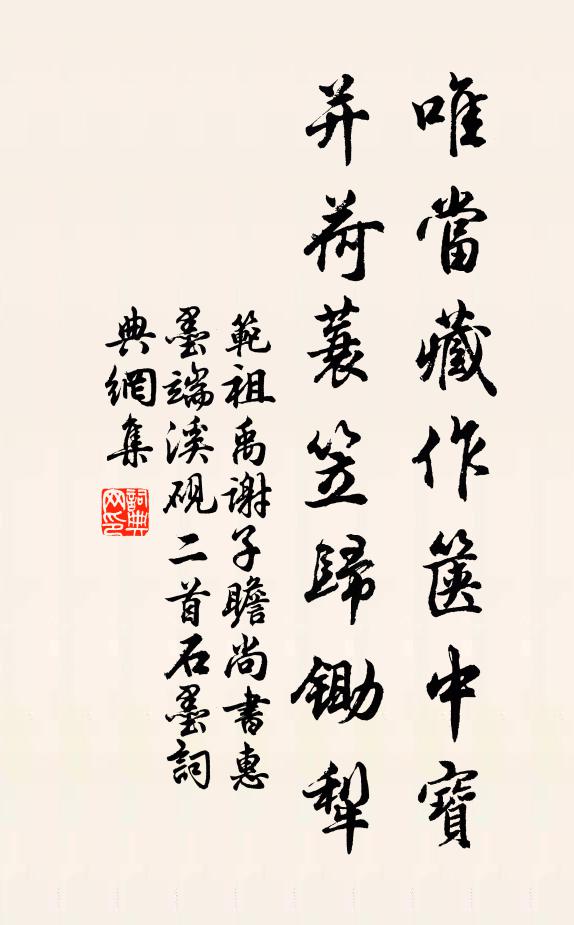 唯當藏作篋中寶
并荷蓑笠歸鋤犁
範祖禹謝子瞻尚書惠
墨端溪硯二首石墨詞
典網集
詞典網印